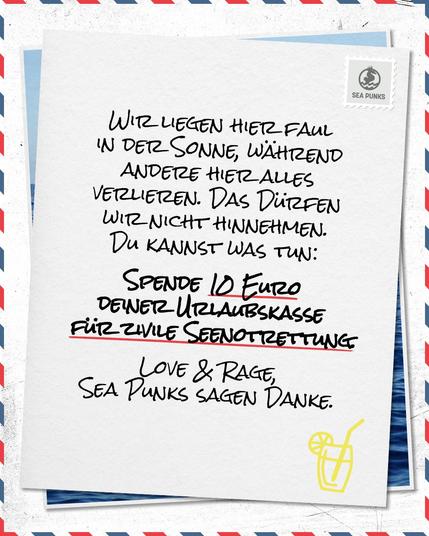 SEA PUNKS
Wir liegen hier faul
in der Sonne, während
andere hier alles
verlieren. Das Dürfen
wir nicht hinnehmen.
Du kannst was tun:
Spende 10 Euro
deiner Urlaubskasse
für zivile Seenotrettung
Love & Rage,
Sea Punks sagen Danke.